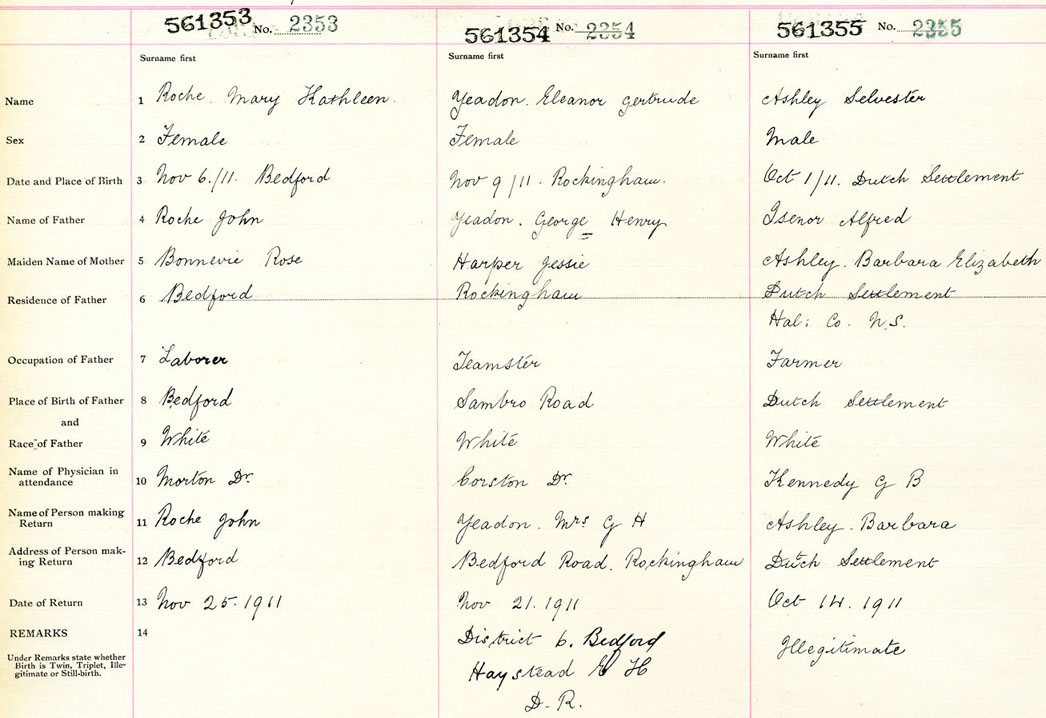 561353 No. 2353 561354 No. 2354 561355 No. 2355
Surname first Surname first Surname first
Name 1 Roche. Mary Kathleen. Yeadon. Eleanor Gertrude Ashley Selvester
Sex 2 Female Female Male
Date and Place of Birth 3 Nov 6./11. Bedford Nov 9/11. Rockingham. Oct 1/11. Dutch Settlement
Name of Father 4 Roche John Yeadon. George Henry Isenor Alfred
Maiden Name of Mother 5 Bonnevie Rose Harper Jessie Ashley. Barbara Elizabeth
Residence of Father 6 Bedford Rockingham Dutch Settlement
Hal: Co. N.S.
Occupation of Father 7 Laborer Teamster Farmer
Place of Birth of Father 8 Bedford Sambro Road Dutch Settlement
and
Race of Father 9 White White White
Name of Physician in
attendance 10 Morton Dr. Corston Dr. Kennedy G B
Name of Person making
Return 11 Roche John Yeadon. Mrs G H Ashley. Barbara
Address of Person mak-
ing Return 12 Bedford Bedford Road. Rockingham Dutch Settlement
Date of Return 13 Nov 25. 1911 Nov 21. 1911 Oct 14. 1911
REMARKS 14 District 6. Bedford Illegitimate
Under Remarks state whether
Birth is Twin, Triplet, Ille-
gitimate or Still-birth.
Haystead E H
D. R.